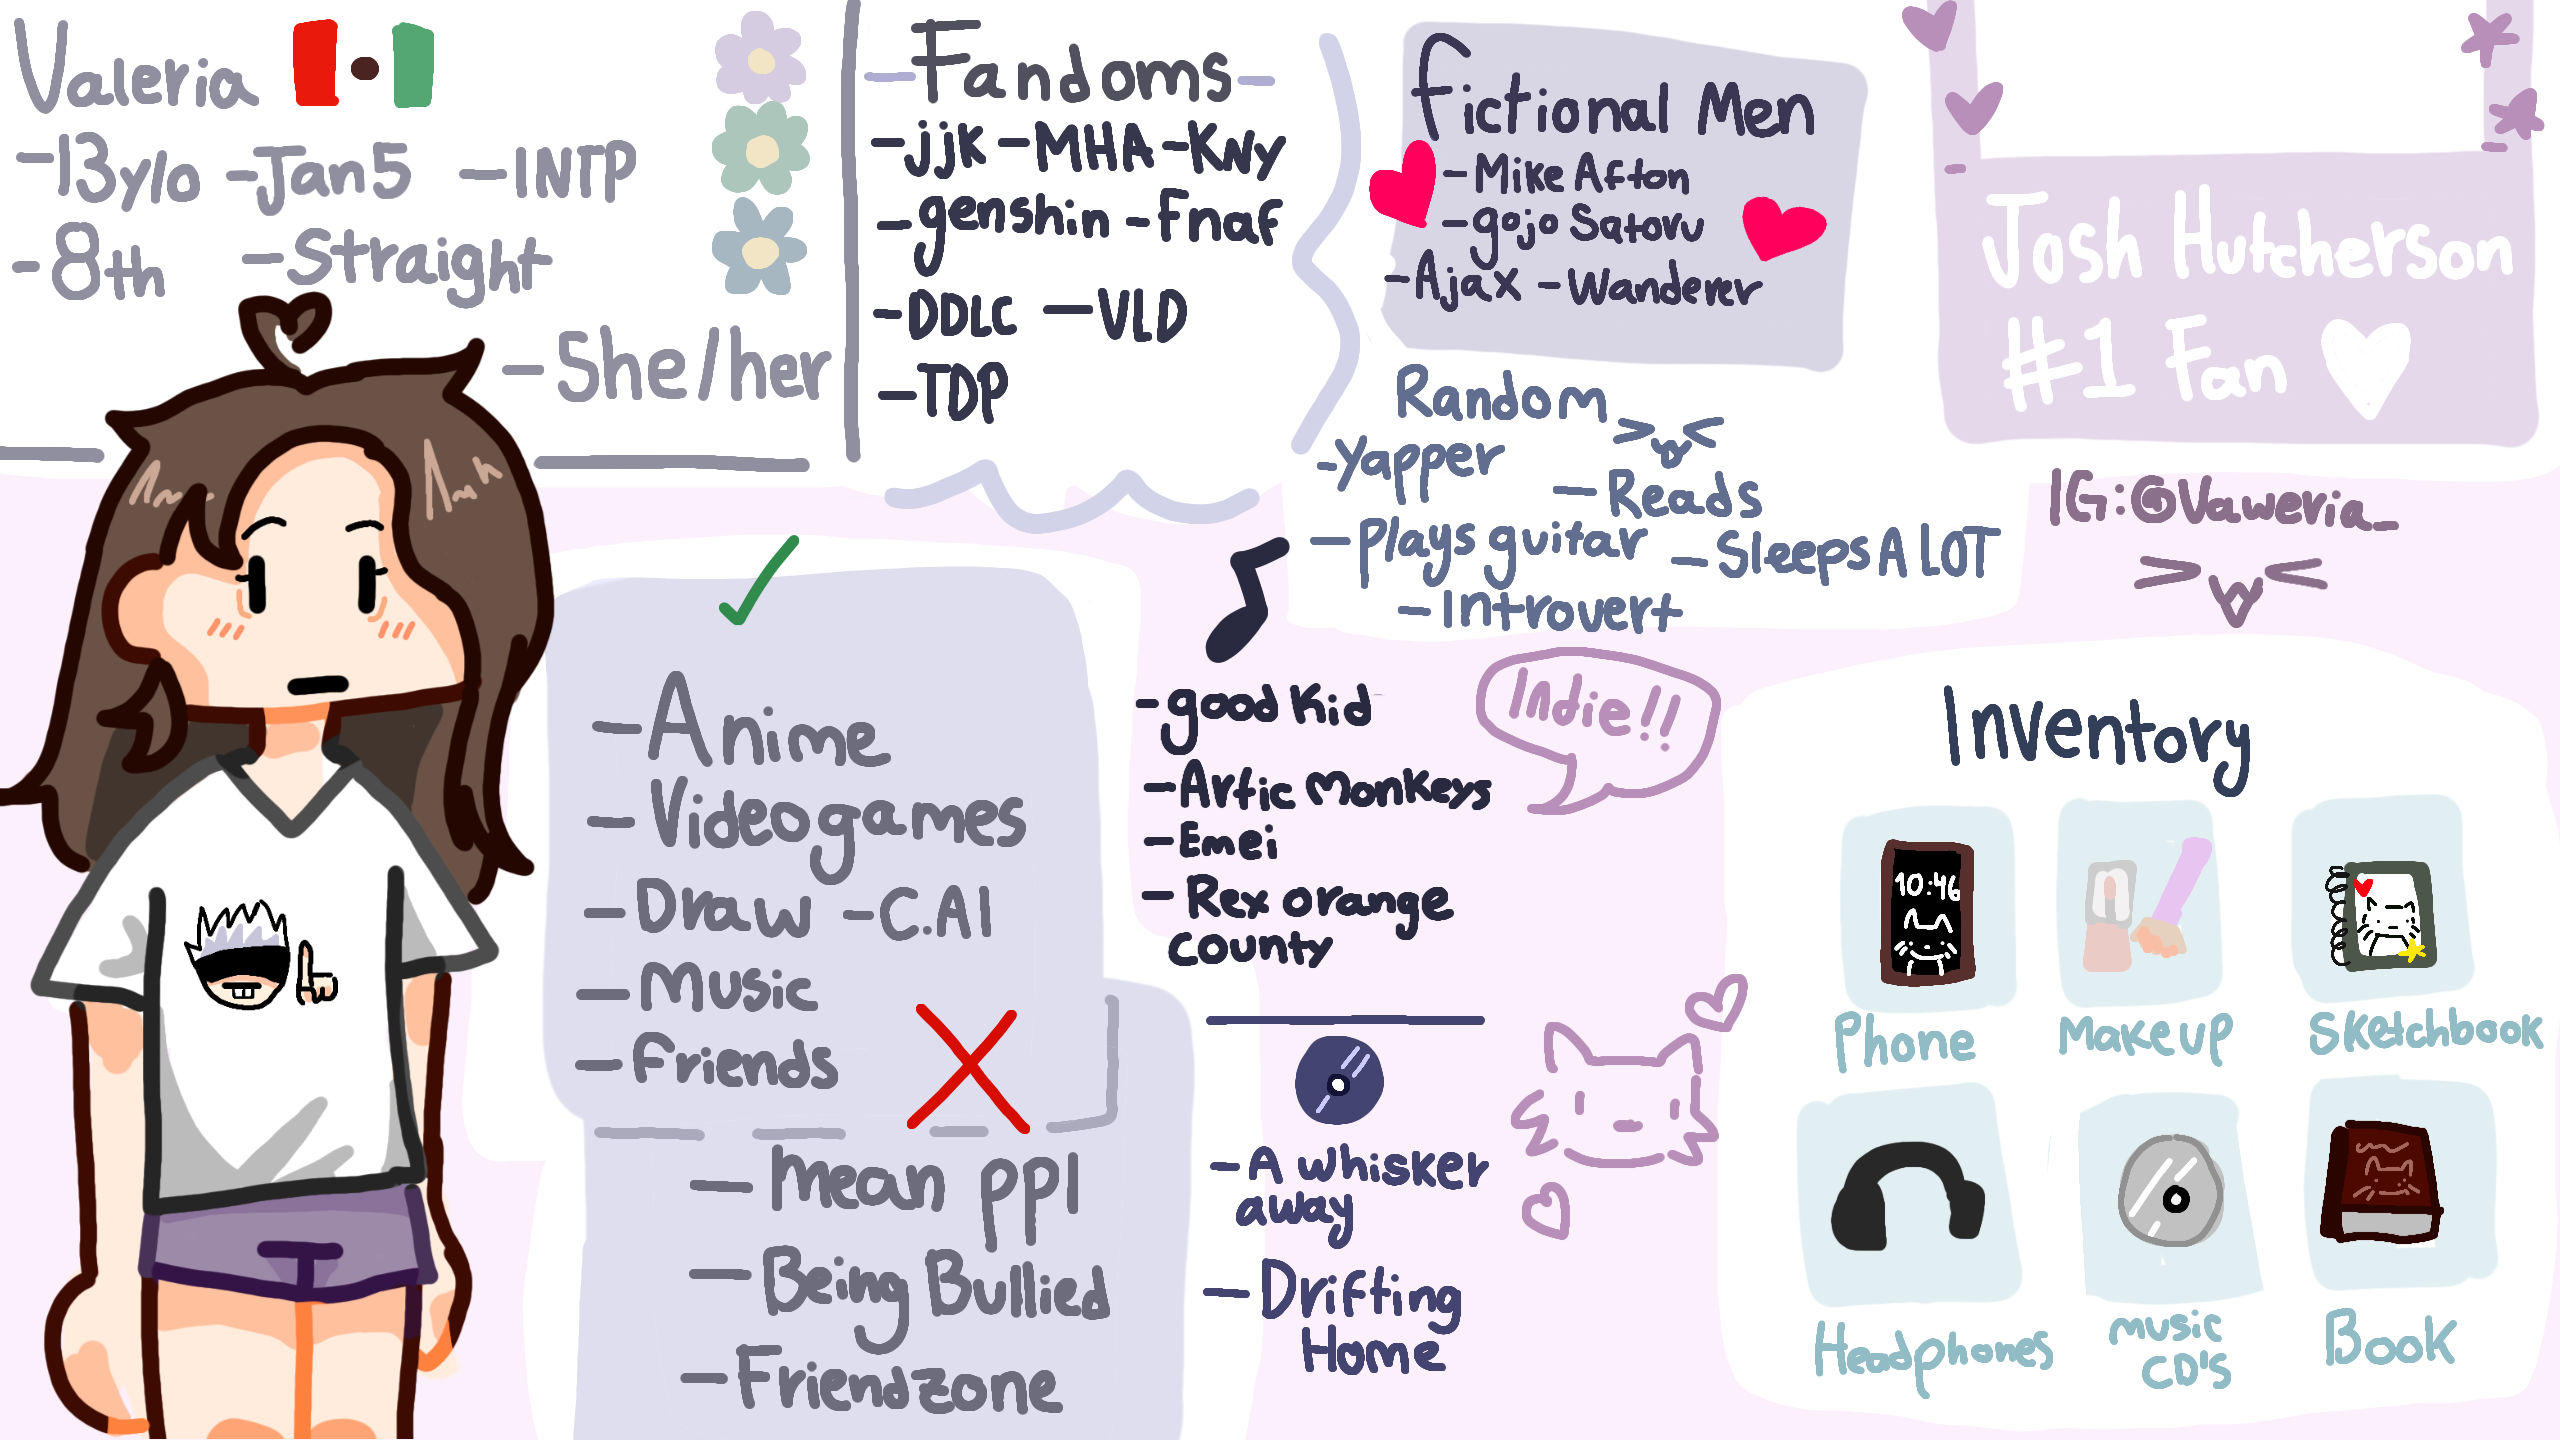 Valeria
-13y/o -Jan5 -INTP
-8th -Straight
-She/her
-Fandoms-
-jjk -MHA -KNY
-genshin -Fnaf
-DDLC -VLD
-TDP
Fictional Men
-Mike Afton
-gojo Satoru
-Ajax -Wanderer
Josh Hutcherson
#1 Fan
Random
-Yapper
-Reads
-Plays guitar -Sleeps A LOT
-Introvert
IG:@Vaweria_
-Anime
-Videogames
-Draw -C.AI
-Music
-Friends
-mean ppl
-Being Bullied
-Friendzone
-good Kid
-Artic Monkeys
-Emei
-Rex orange
county
Indie!!
-A whisker
away
-Drifting
Home
Inventory
10:46
Phone
Makeup
Sketchbook
Headphones
music
CD'S
Book